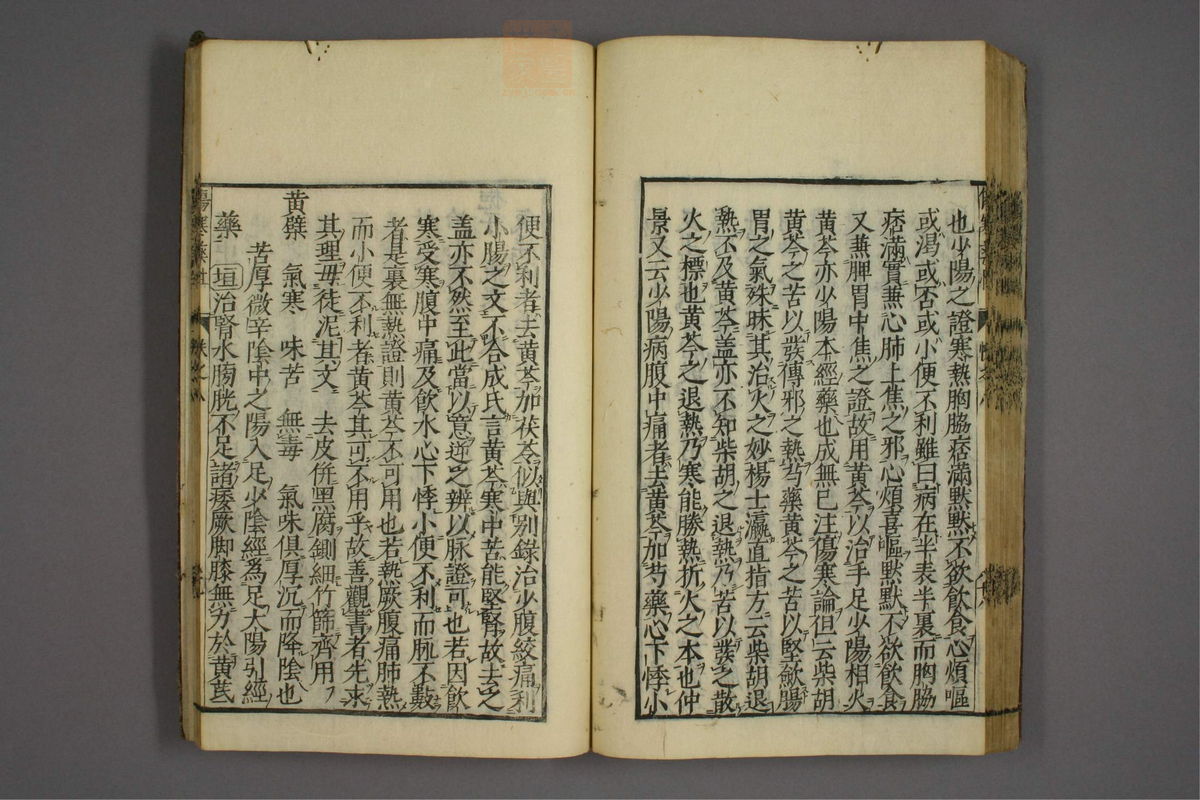 也少陽之證寒熱胸脇痞滿默默不欲飲食心煩嘔
或渴或否或小便不利雖曰病在半表半裏而胸脇
痞滿實兼心肺上焦之邪心煩喜嘔默默不欲飲食
又兼脾胃中焦之證故用黄芩以治手足少陽相火
黄芩亦少陽本經藥也成無已注傷寒論但云柴胡
黄芩之苦以發傳邪之熱芍藥黄芩之苦以堅歛腸
胃之氣殊昧其治火之妙楊士瀛直指方云柴胡退
熱不及黄芩盖亦不知柴胡之退熱乃苦以發之散
火之標也黄芩之退熱乃寒能勝熱折火之本也仲
景又云少陽病腹中痛者去黄芩加芍藥心下悸小
便不利者去黄芩加茯苓似與别錄治少腹絞痛利
小腸之文不合成氏言黄芩寒中苦能堅腎故去之
盖亦不然至此當以意逆之辨以脉證可也若因飲
寒受寒腹中痛及飲水心下悸小便不利而脉不數
者是裏無熱證則黄芩不可用也若熱厥腹痛肺熱
而小便不利者黄芩其可不用乎故善觀書者先求
其理毋徒泥其文 去皮併黑腐剉細竹篩齊用
黄蘗 氣寒 味苦 無毒 氣味俱厚沉而降陰也
苦厚微辛陰中之陽入足少陰經為足太陽引經
藥 垣治腎水膀胱不足諸痿厥脚膝無力於黄芪